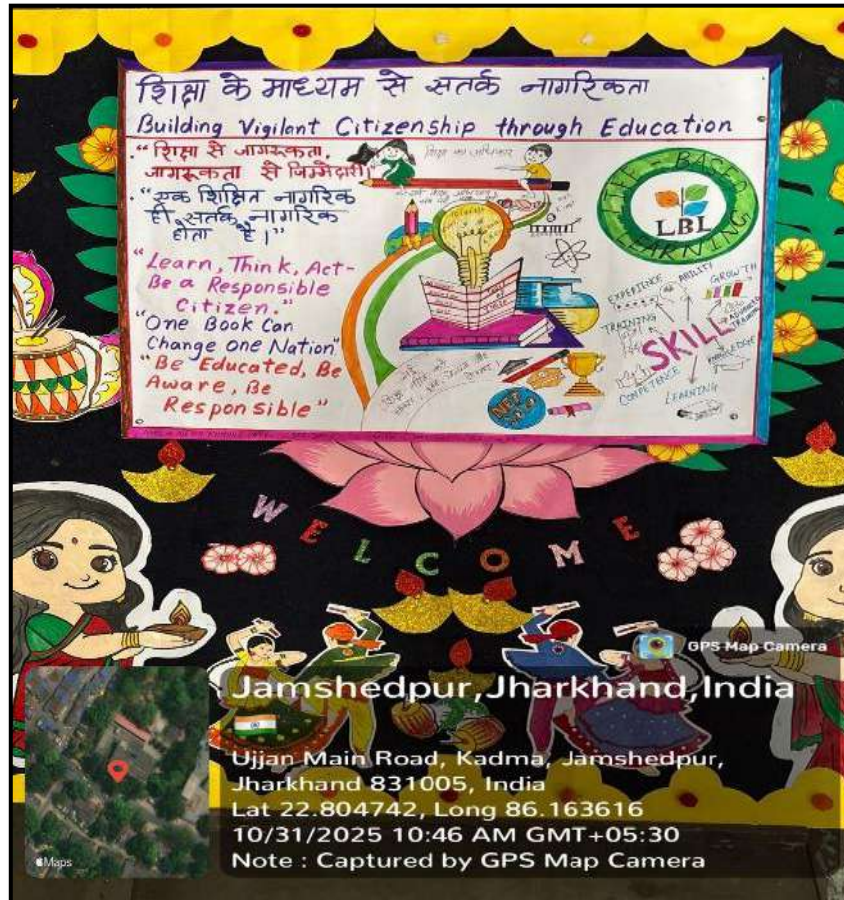 शिक्षा के माध्यम से सतर्क नागरिकता
Building Vigilant Citizenship through Education
"शिक्षा से जागरूकता,
जागरूकता से जिम्मेदारी।"
"एक शिक्षित नागरिक
ही सतर्क नागरिक
होता है।"
"Learn, Think, Act-
Be a Responsible
Citizen."
"One Book Can
Change one Nation"
"Be Educated, Be
Aware, Be
Responsible"
शिक्षा का अधिकार
LIFE BASED
LEARNING
LBL
EXPERIENCE
ABILITY
GROWTH
TRAINING
ADVANCED
TRAINING
SKILL
KNOWLEDGE
COMPETENCE
LEARNING
NEP
WELCOME
GPS Map Camera
Jamshedpur,Jharkhand,India
Ujjan Main Road, Kadma, Jamshedpur,
Jharkhand 831005, India
Lat 22.804742, Long 86.163616
10/31/2025 10:46 AM GMT+05:30
Note : Captured by GPS Map Camera
Maps